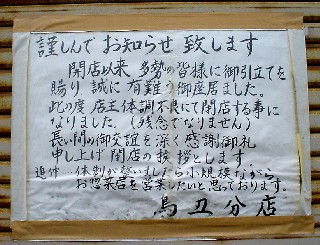 謹しんでお知らせ致します
開店以来多勢の皆様に御引立てを
賜り誠に有難う御座居ました。
此の度店主体調不良にて閉店する事に
なりました。(残念でなりません)
長い間の御交誼を深く感謝御礼
申し上げ閉店の挨拶とします。
追伸…体調が整いましたら小規模ながら
お惣菜店を営業したいと思っております。
鳥丑分店